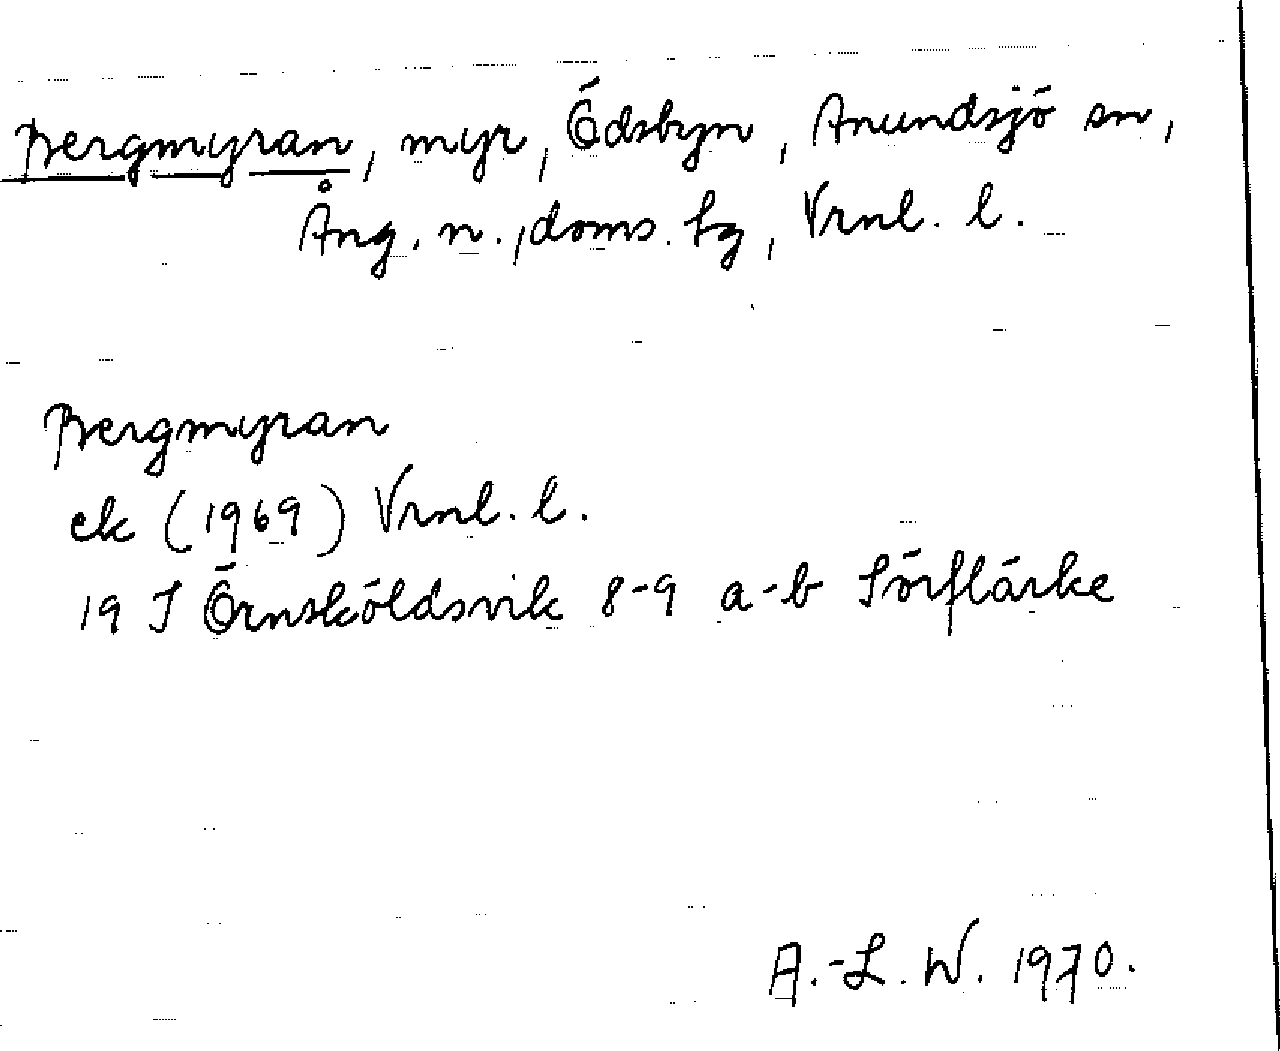 Bergmyran, myr, Ödsbyn, Anundsjö sn,
Ång. n., doms. sg, Vrnl. l.
Bergmyran
ek (1969) Vrnl. l.
19 J Örnsköldsvik 8-9 a-b Sörflärke
A.-L. W. 1970.